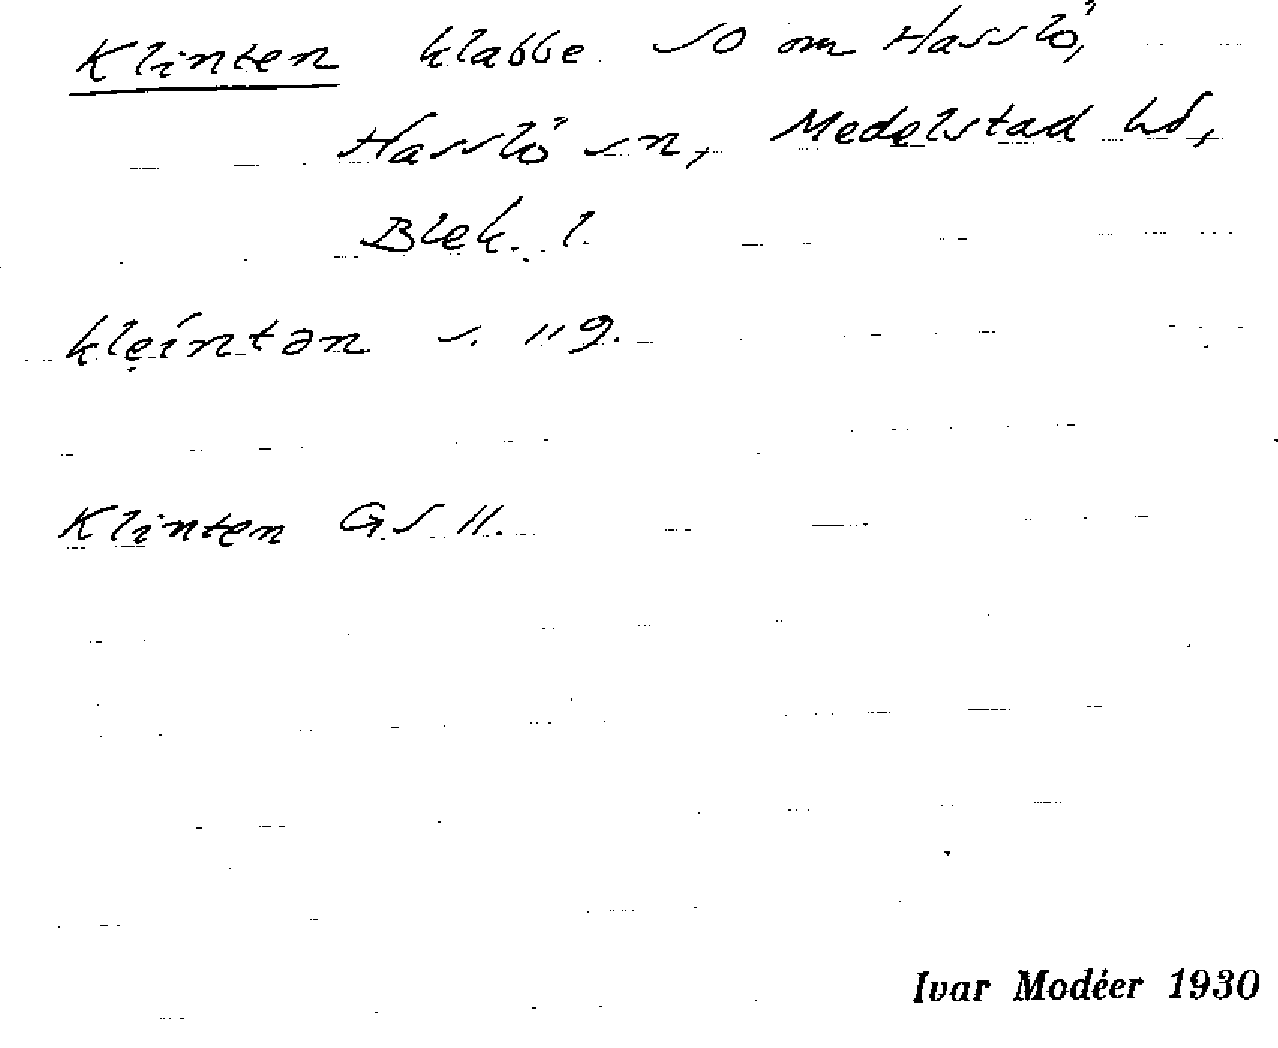 Klinten klabbe SO om Hasslö,
Hasslö sn, Medelstad hd,
Blek. l.
kleíntən s. 119.
Klinten GS 11.
Ivar Modéer 1930